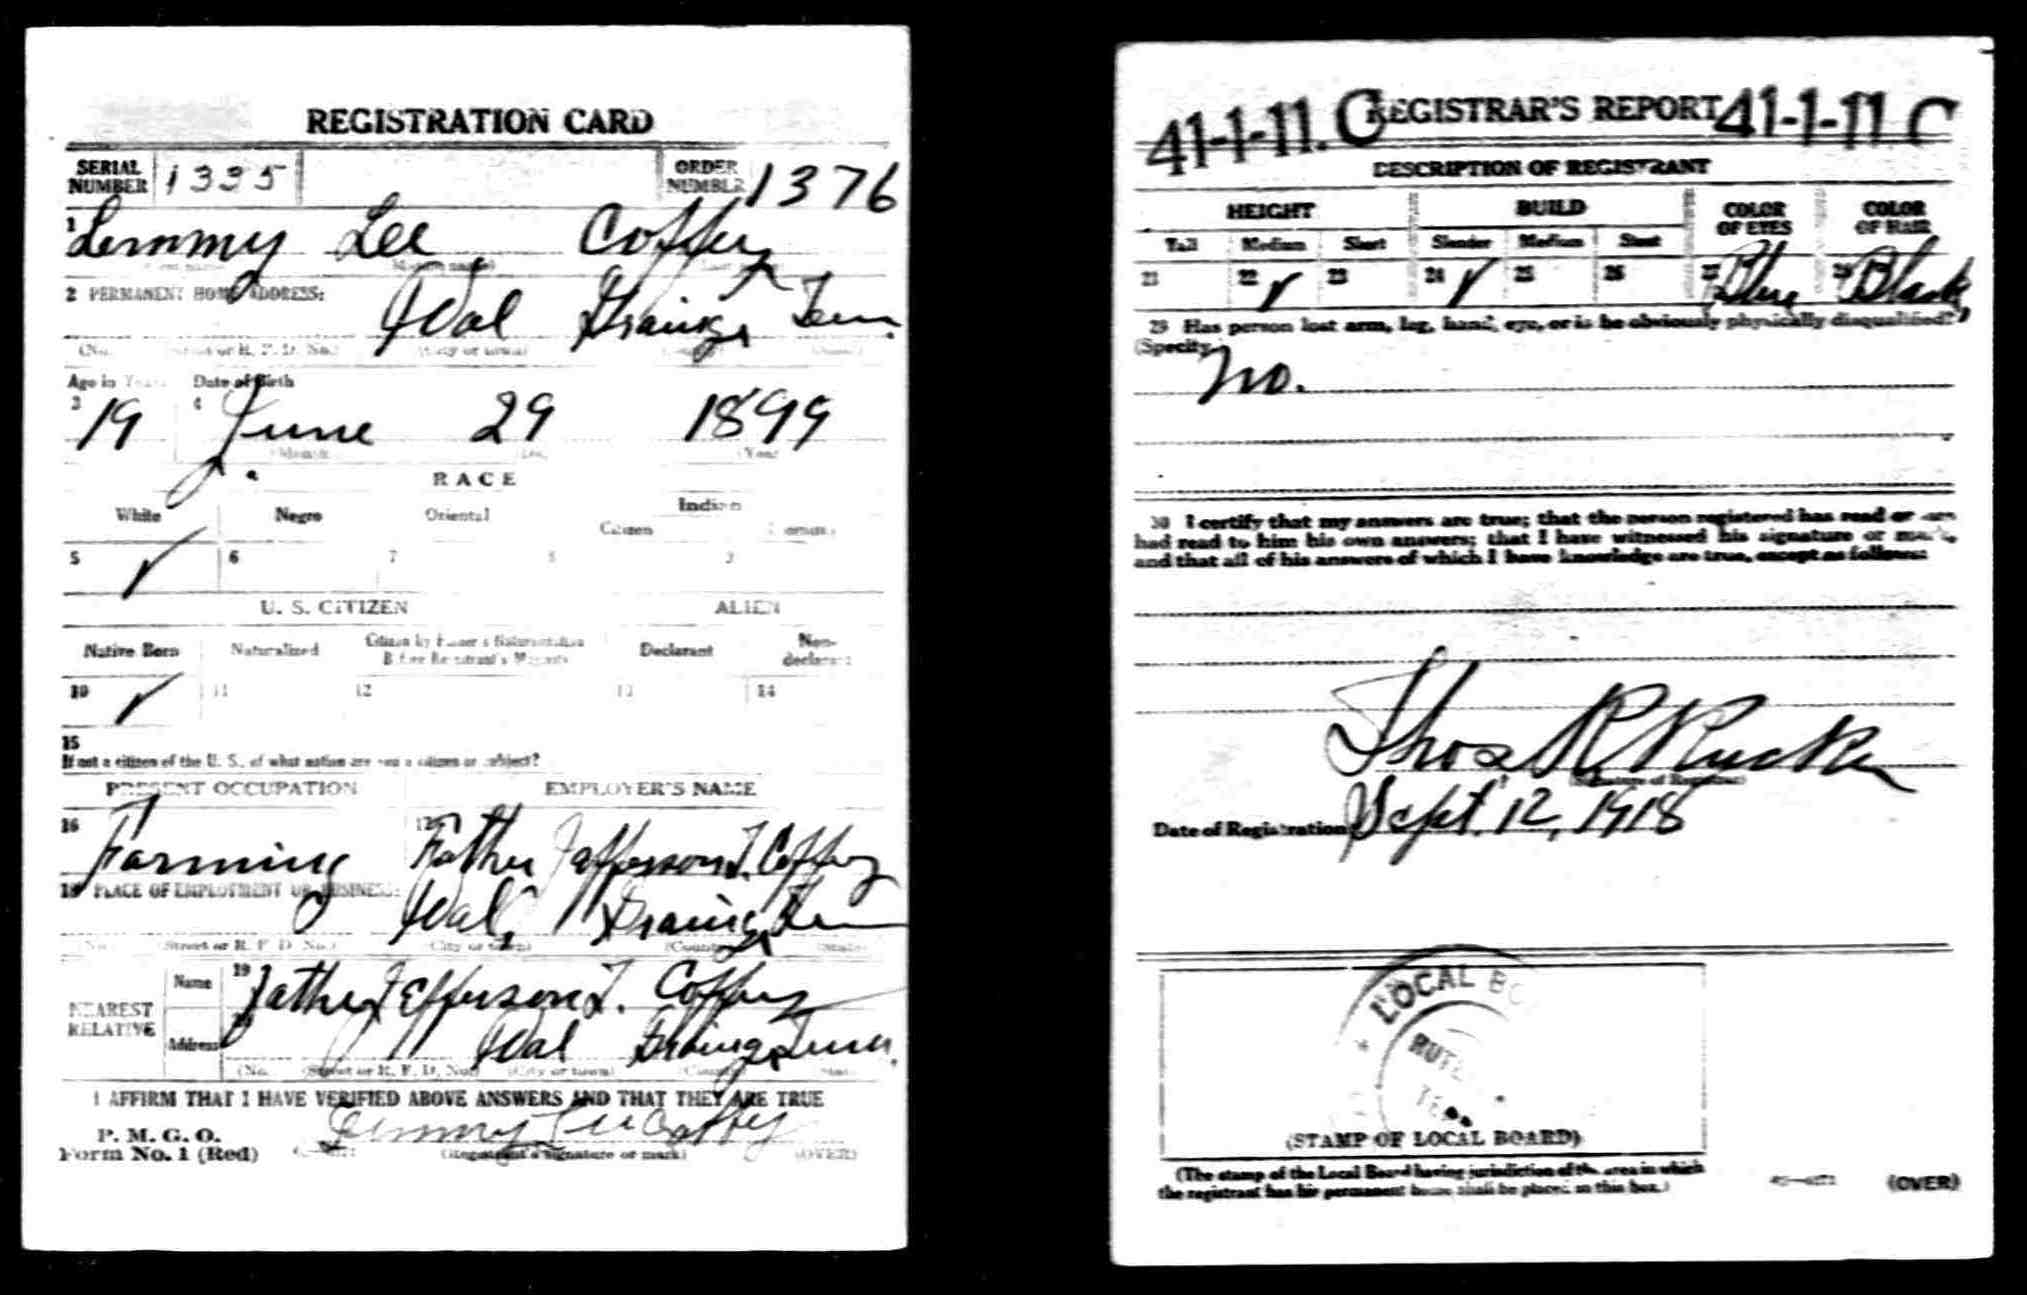 REGISTRATION CARD
SERIAL NUMBER 1335 ORDER NUMBER 1376
1 Lemmy Lee Coffey
2 PERMANENT HOME ADDRESS: Idol Grainger Tenn
(No. Street or R. F. D. No.) (City or town) (County) (State)
Age in Years Date of Birth
3 19 4 June 29 1899
(Month) (Day) (Year)
RACE
White Negro Oriental Indian
Citizen
5 ✓ 6 7
U. S. CITIZEN ALIEN
Native Born Naturalized Citizen by Father's Naturalization Before Registrant's Majority Declarant Non-declarant
10 ✓ 11 12 13 14
15
If not a citizen of the U. S., of what nation are you a citizen or subject?
PRESENT OCCUPATION EMPLOYER'S NAME
16 Farming 17 Father Jefferson T. Coffey
18 PLACE OF EMPLOYMENT OR BUSINESS: Idol, Grainger Ten
(No.) (Street or R. F. D. No.) (City or town) (County) (State)
NEAREST RELATIVE Name 19 Father Jefferson T. Coffey
Address Idol Grainger Tenn.
(No. (Street or R. F. D. No.) (City or town) (County) State)
I AFFIRM THAT I HAVE VERIFIED ABOVE ANSWERS AND THAT THEY ARE TRUE
P. M. G. O.
Form No. 1 (Red) Lemmy Lee Coffey
(Registrant's signature or mark) (OVER)
41-1-11. C REGISTRAR'S REPORT 41-1-11 C
DESCRIPTION OF REGISTRANT
HEIGHT BUILD COLOR OF EYES COLOR OF HAIR
Tall Medium Short Slender Medium Stout
21 22 ✓ 23 24 ✓ 25 26 27 Blue 28 Black
29 Has person lost arm, leg, hand, eye, or is he obviously physically disqualified?
(Specify.) No.
30 I certify that my answers are true; that the person registered has read or has
had read to him his own answers; that I have witnessed his signature or mark,
and that all of his answers of which I have knowledge are true, except as follows:
Thos R Rucker
(Signature of Registrar)
Date of Registration Sept. 12, 1918
LOCAL BO
RUT
TENN
(STAMP OF LOCAL BOARD)
(The stamp of the Local Board having jurisdiction of the area in which
the registrant has his permanent home shall be placed in this box.)
(OVER)